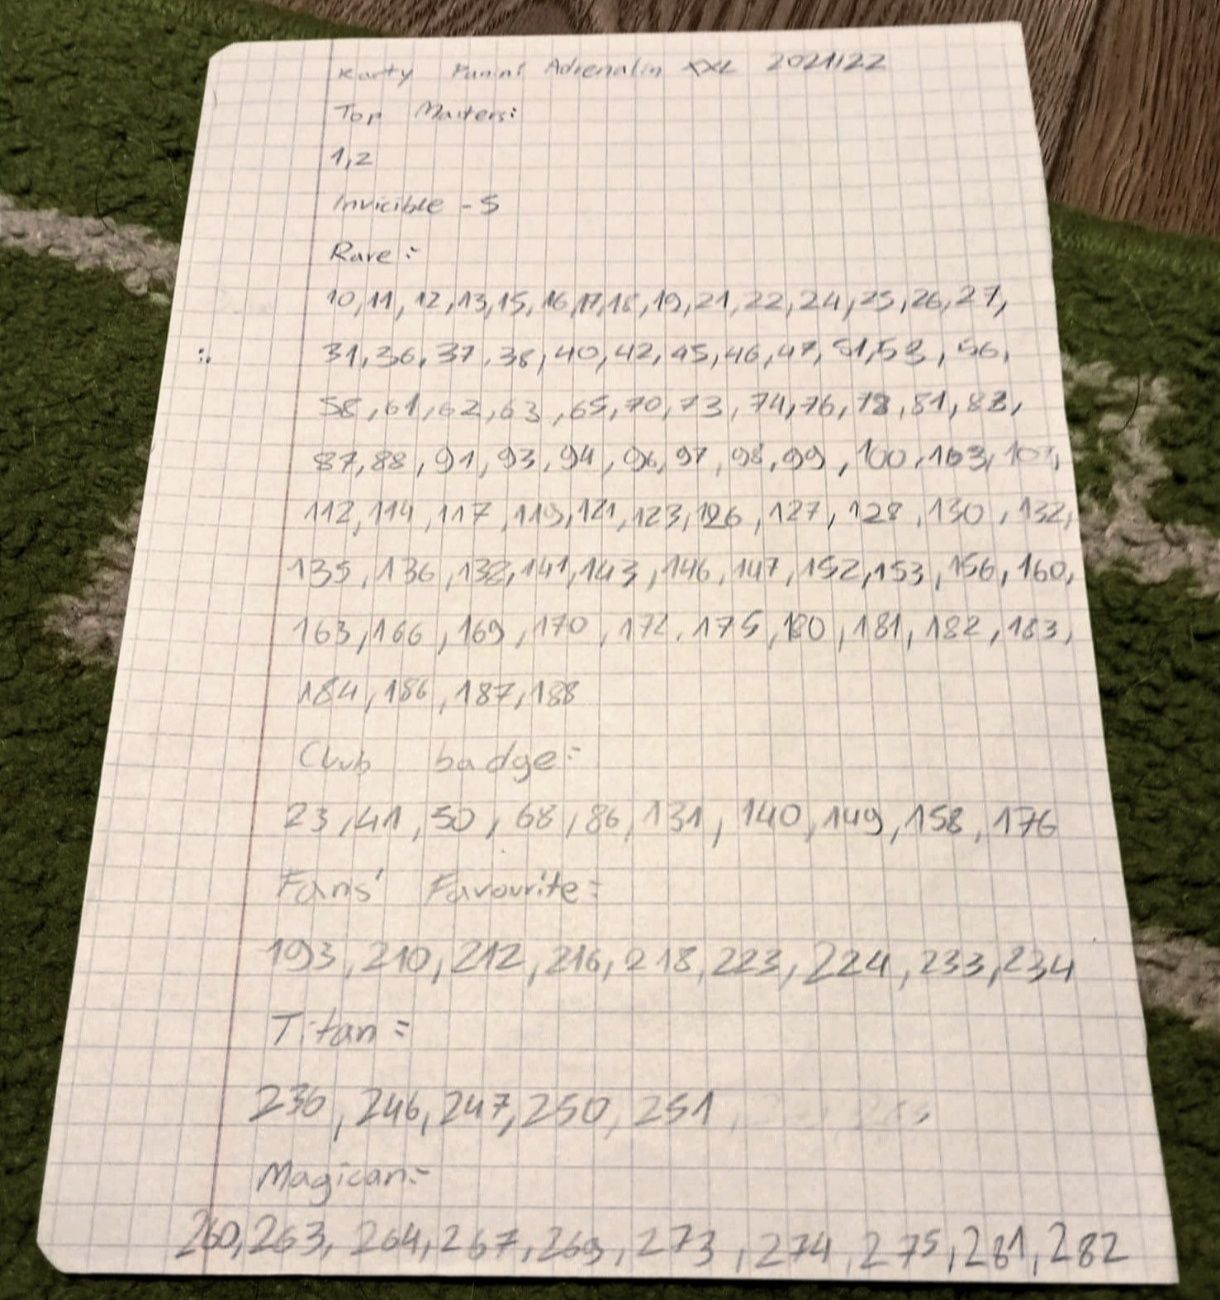 Karty Panini Adrenalin XXL 2021/22
Top Masters:
1,2
Invicible - 5
Rare:
10,11,12,13,15,16,17,18,19,21,22,24,25,26,27,
31,36,37,38,40,42,45,46,47,51,53,56,
58,61,62,63,65,70,73,74,76,78,81,82,
87,88,91,93,94,96,97,98,99,100,103,
112,114,117,119,121,123,126,127,128,130,132,
135,136,138,141,143,146,147,152,153,156,160,
163,166,169,170,172,175,180,181,182,183,
184,186,187,188
Club badge:
23,41,50,68,86,131,140,149,158,176
Fans' Favourite:
193,210,212,216,218,223,224,233,234
Titan:
236,246,247,250,251
Magican:
260,263,264,267,269,273,274,275,281,282